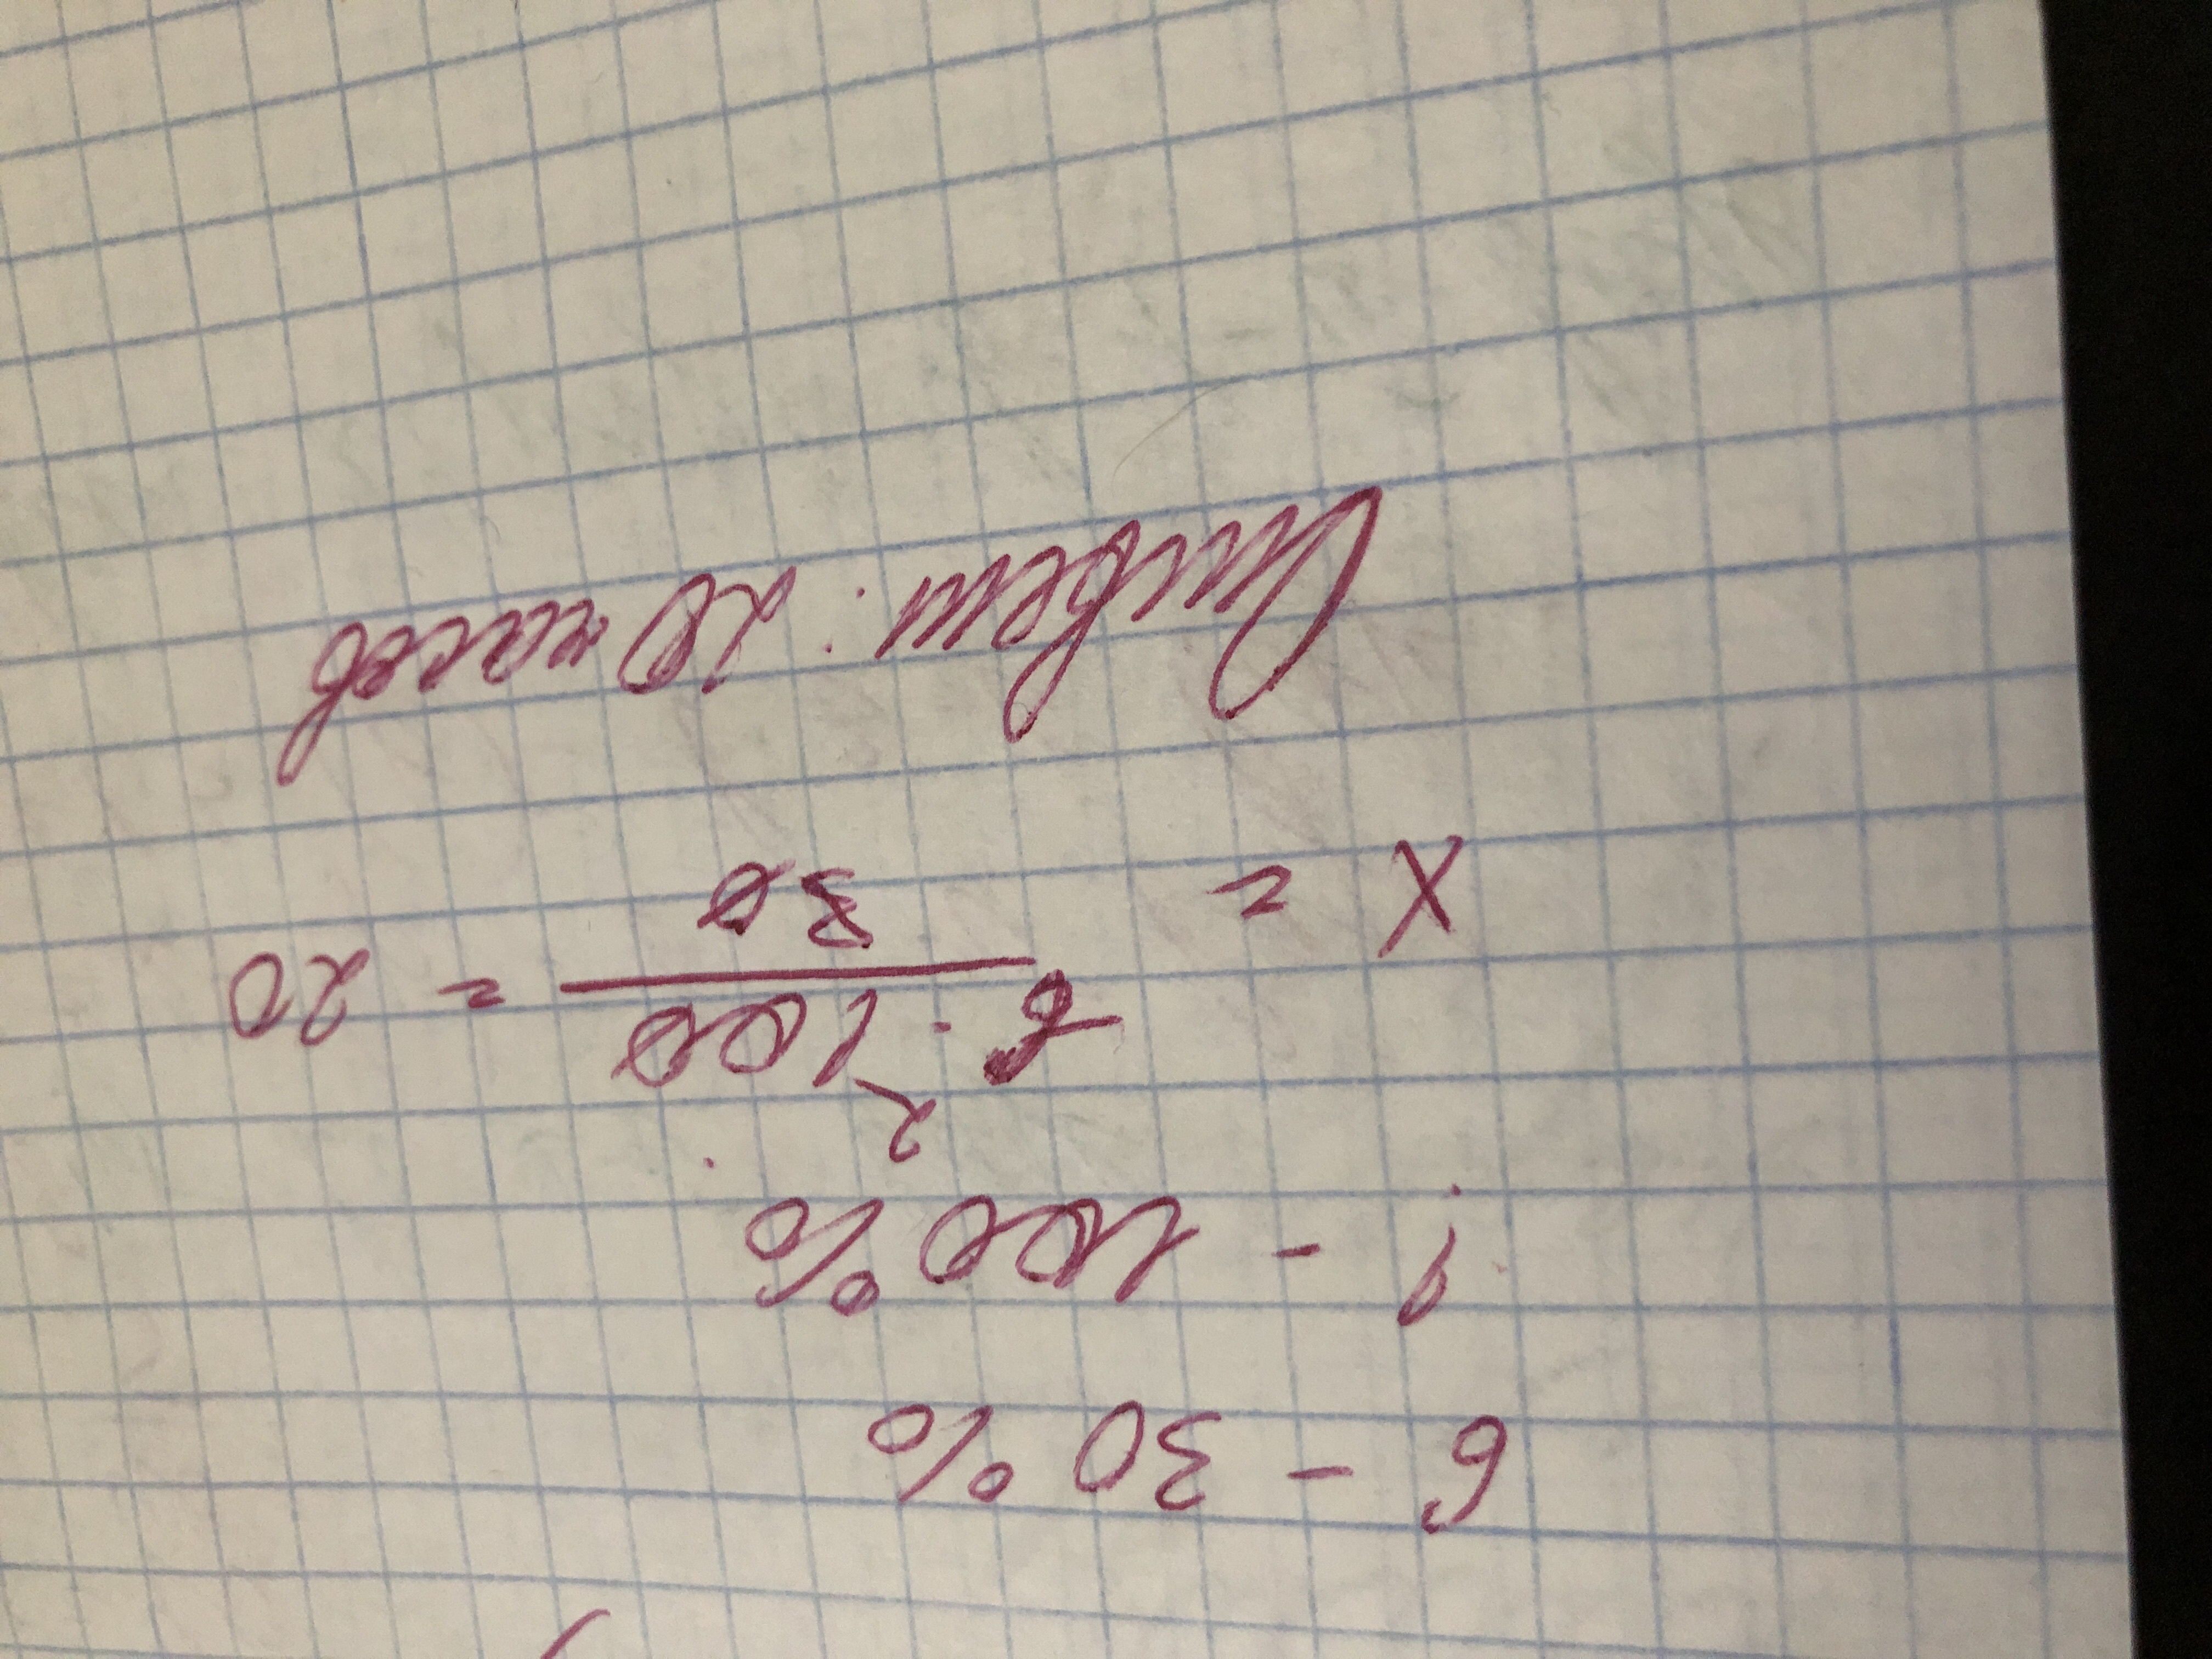 6 - 30 %
? - 100 %
2
x = 6 · 100 / 30 = 20
Ответ: 20 часов